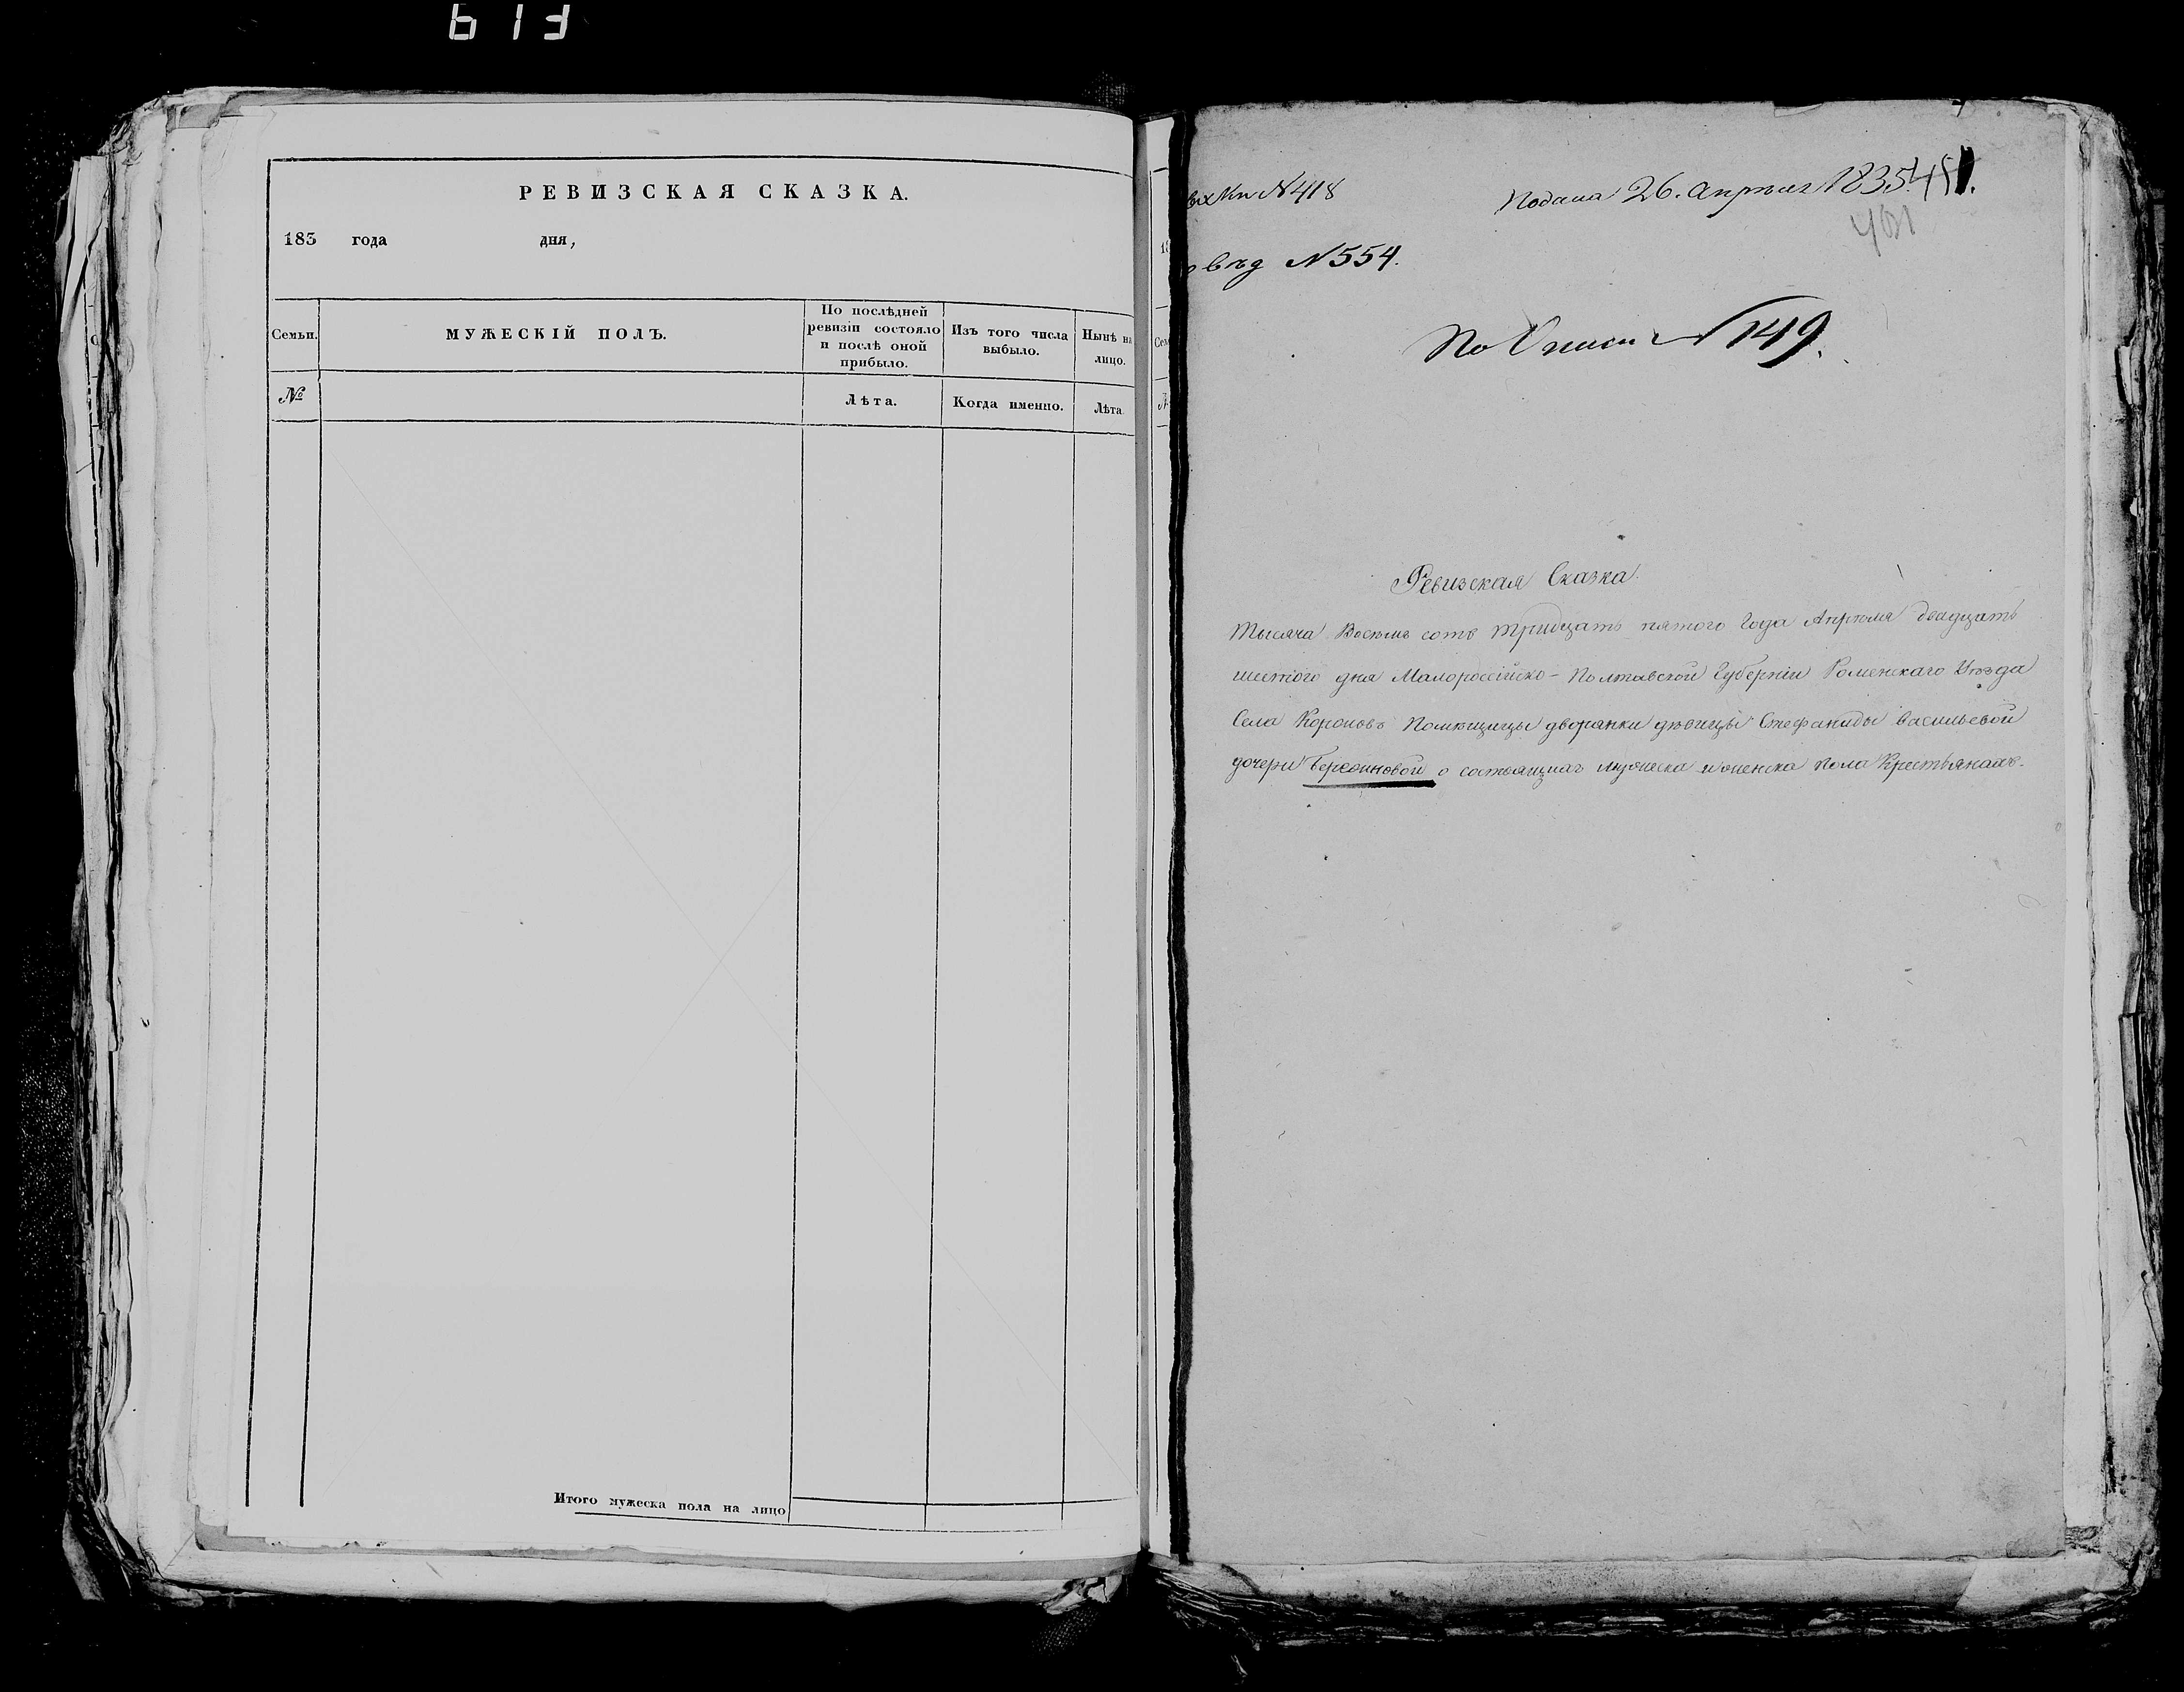 613
РЕВИЗСКАЯ СКАЗКА.
183 года дня,
Семьи.
МУЖЕСКІЙ ПОЛЪ.
По послѣдней ревизіи состояло и послѣ оной прибыло.
Изъ того числа выбыло.
Нынѣ на лицо.
№
Лѣта.
Когда именно.
Лѣта
Итого мужеска пола на лицо
№418
Подана 26. апрѣля 1835.
вѣд №554.
По Описи №149.
Ревизская Сказка.
Тысяча Восемь сотъ тридцать пятого года Апрѣля двадцать
шестого дня Малороссійско-Полтавской Губерніи Роменскаго Уѣзда
Села Корововъ Помѣщицы дворянки дѣвицы Стефаниды Васильевой
дочери о состоящихъ мужеска и женска пола Крестьянахъ.